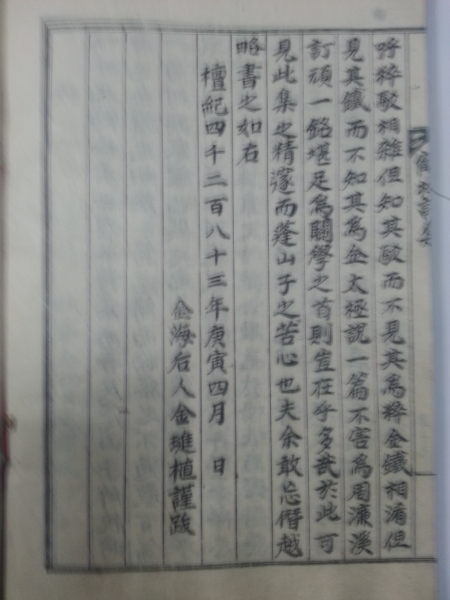 呼粹駁相雜但知其駁而不見其爲粹金鐵相淆但
見其鐵而不知其爲金太極說一篇不害爲周濂溪
訂頑一銘堪足爲關學之首則豈在乎多哉於此可
見此集之精邃而蓬山子之苦心也夫余敢忘僭越
略書之如右
檀紀四千二百八十三年庚寅四月 日
金海后人金 植謹跋